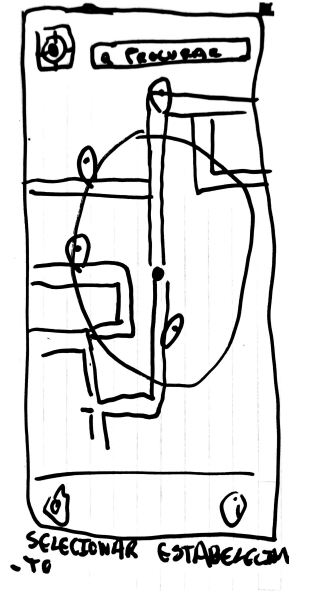 PROCURAR
SELECIONAR ESTABELECIM
-TO